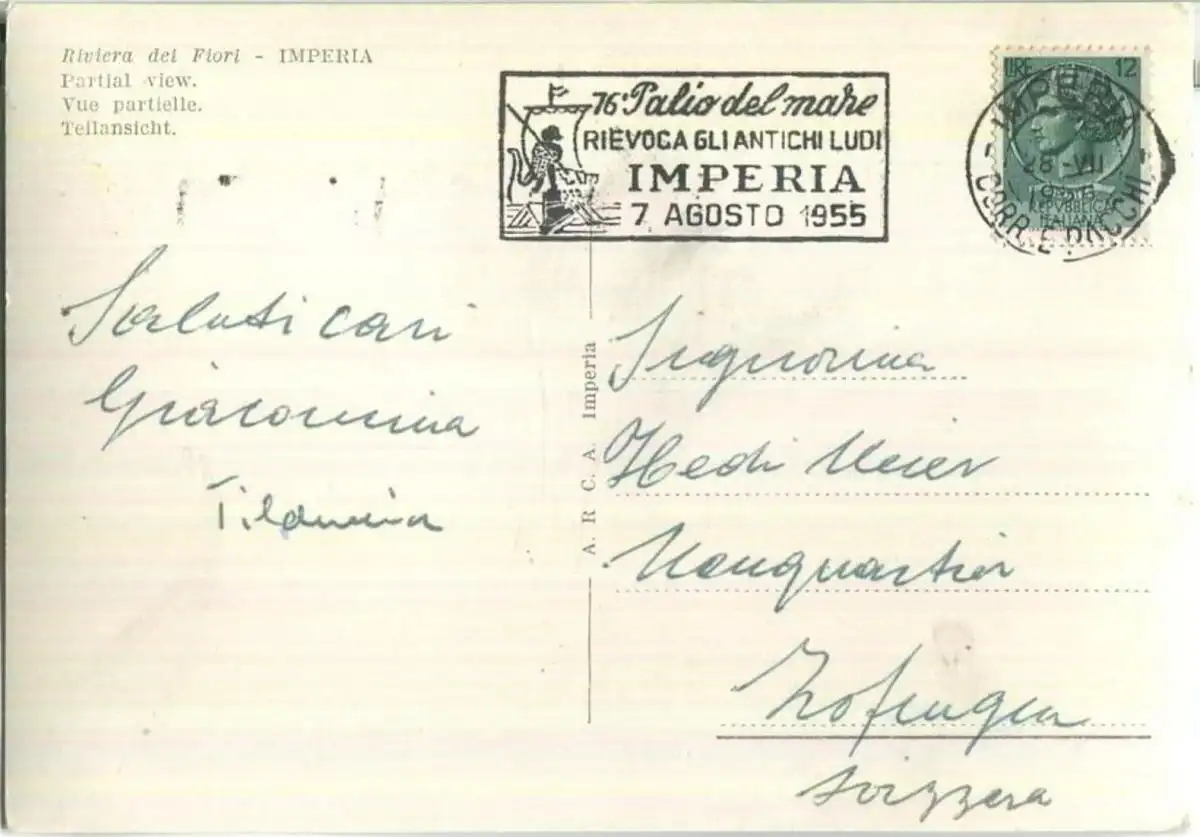 Riviera dei Fiori - IMPERIA
Partial view.
Vue partielle.
Teilansicht.
76º Palio del mare
RIEVOCA GLI ANTICHI LUDI
IMPERIA
7 AGOSTO 1955
LIRE 12
REPUBBLICA
ITALIANA
IMPERIA
28 - VII
CORR. E PACCHI
Saluti cari
Giacomina
A. R. C. A. Imperia
Signorina
Hedi Meier
Neuquartier
Zofingen
Svizzera